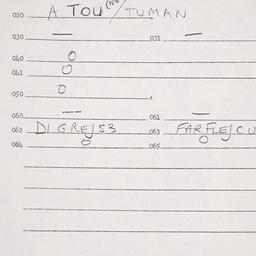 020 A TOU (150 / TUMAN
030 — 031 —
040 0
041 0
050 0
060 — 061 —
062 DIGRE/53 063 FARFLE/CU
064 0 065 0